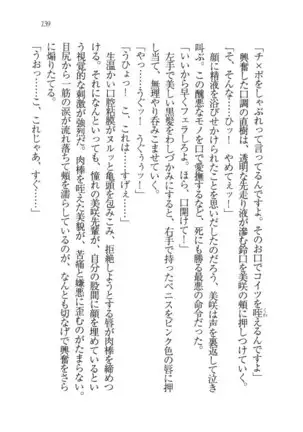 139
「チ×ポをしゃぶれって言ってるんですよ。そのお口でコイツを咥えるんですよ」
興奮した口調の直樹は、透明な先走り液が滲む鈴口を美咲の頬に押しつけていく。
「そ、そんな……ひッ！　やめてぇッ！」
顔に精液を浴びせかけられたことを思いだしたのだろう、美咲は声を裏返して泣き
叫ぶ。この醜悪なモノを口で愛撫するなど、死にも勝る最悪の命令だった。
「いいから早くフェラしろよ。ほら、口開けて！」
左手で美しい黒髪をわしづかみにすると、右手で持ったペニスをピンク色の唇に押
し当て、無理やり呑みこませていく。
「やっ……うぐっ！　うぐぅううッ！」
「うひょう……こ、これは……すげぇ……」
生温かい口腔粘膜がヌルッと亀頭を包みこみ、拒絶しようとする唇が肉棒を締めつ
ける。それになんといっても、憧れの美咲先輩が、自分の股間に顔を埋めているとい
う視覚的な刺激が強烈だ。肉棒を咥えた美貌が、苦痛と嫌悪に歪むのがたまらない。
目尻から一筋の涙が流れ落ちて頬を濡らしているのが、なんとも切なげで興奮をさら
に煽りたてる。
「うおっ……こ、これじゃあ、すぐ……」